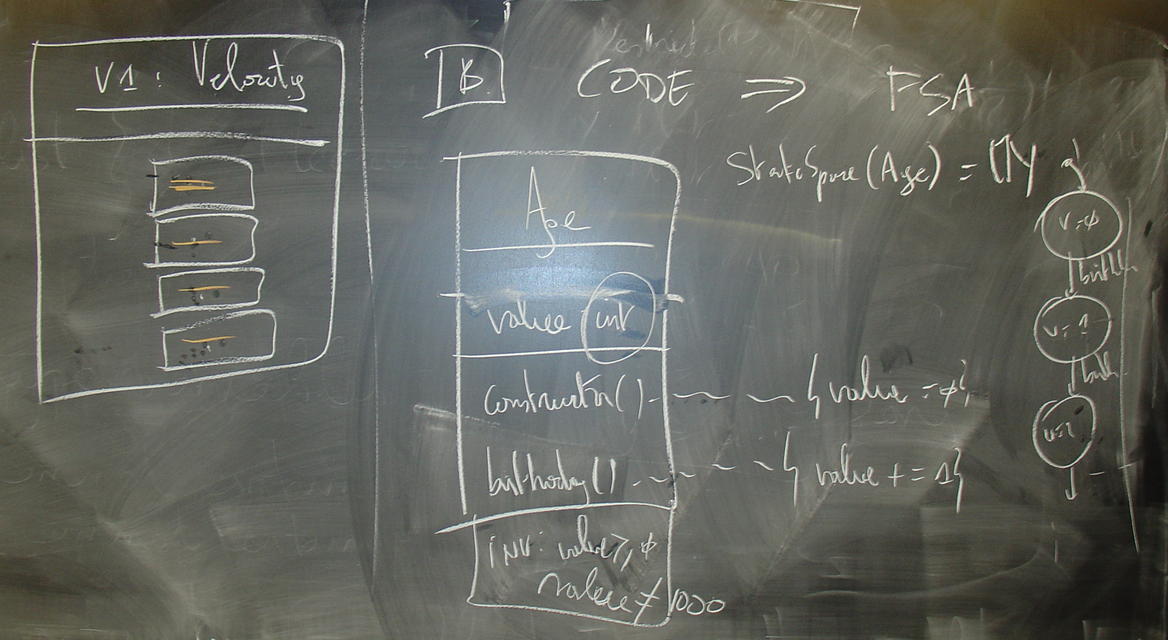 V1 : Velocity
B
CODE ⇒ FSA
StateSpace (Age) = ℕ
Age
value int
constructor() { value = ϕ }
birthday() { value += 1 }
inv: value ≥ ϕ
value ≠ 1000
v=ϕ
birthd
v=1
birth